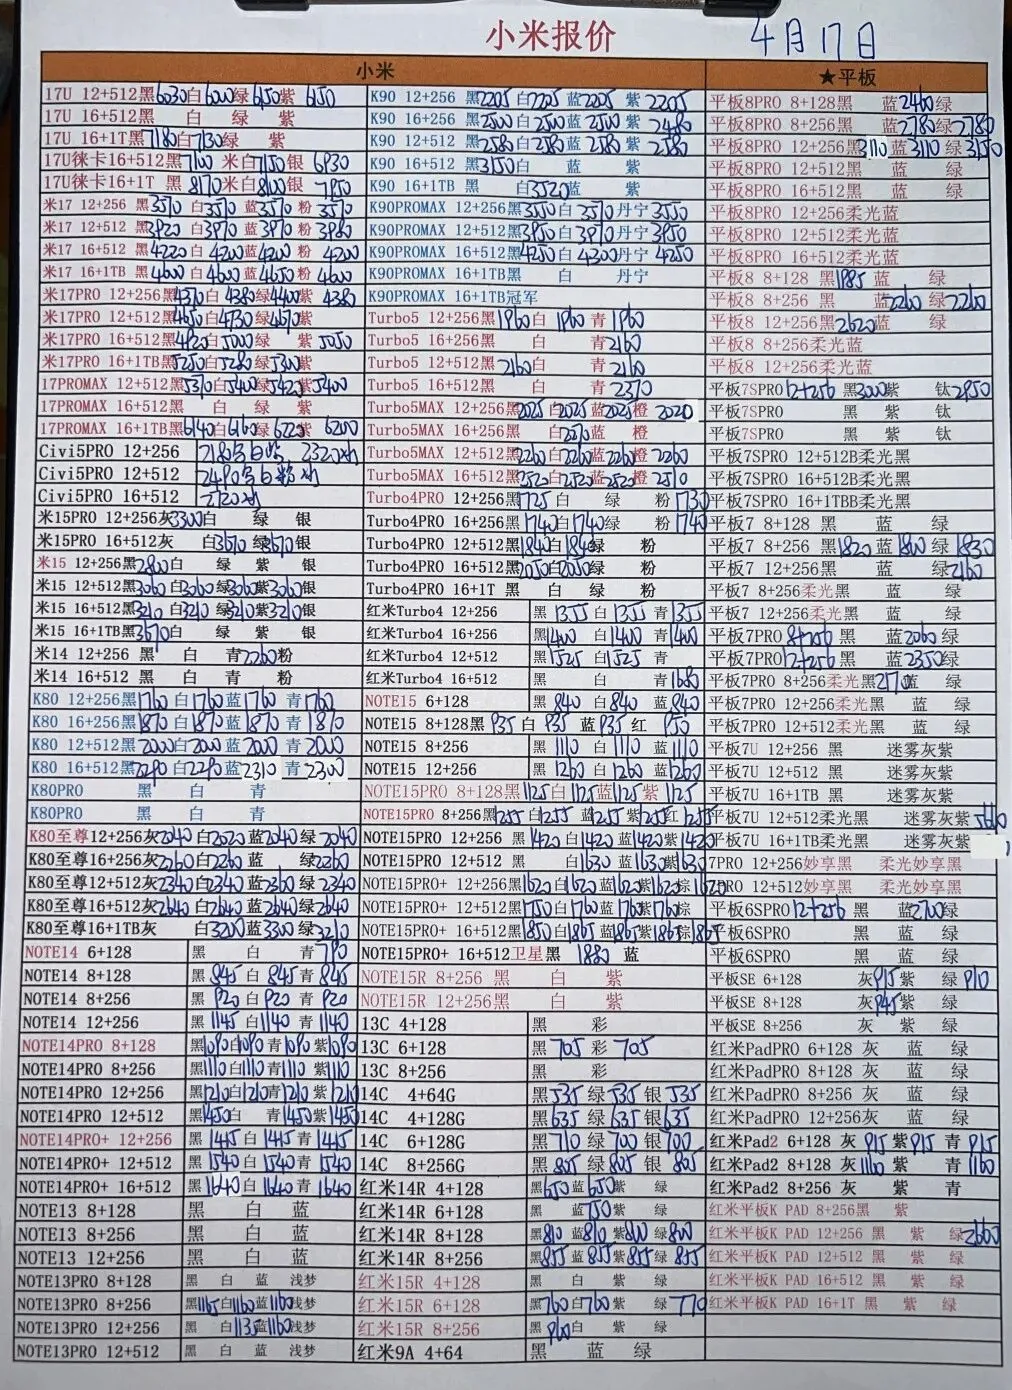 小米报价
4月17日
小米
17U 12+512黑6030白6000绿6150紫 6150
17U 16+512黑 白 绿 紫
17U 16+1T黑7180白7130绿 紫
17U徕卡16+512黑7100 米白7150银 6930
17U徕卡16+1T 黑 8170米白8100银 7950
米17 12+256 黑3570白3570蓝3570粉 3570
米17 12+512 黑3920白3970蓝3970粉 3960
米17 16+512 黑4220白4200蓝4200粉 4200
米17 16+1TB 黑4600白4600蓝4650粉 4600
米17PRO 12+256黑4370白4380绿4400紫 4380
米17PRO 12+512黑4650白4730绿4670紫
米17PRO 16+512黑4920白5000绿 紫 5050
米17PRO 16+1TB黑5250白5280绿5300紫
17PROMAX 12+512黑5370白5400绿5420紫5400
17PROMAX 16+512黑 白 绿 紫
17PROMAX 16+1TB黑6140白6160绿 6220紫 6200
Civi5PRO 12+256
Civi5PRO 12+512
Civi5PRO 16+512
米15PRO 12+256灰3300白 绿 银
米15PRO 16+512灰 白3670绿3670银
米15 12+256黑2800白 绿 紫 银
米15 12+512黑3060白3060绿3060紫3060银
米15 16+512黑3210白3210绿3210紫3210银
米15 16+1TB黑3670白 绿 紫 银
米14 12+256 黑 白 青2260粉
米14 16+512 黑 白 青 粉
K80 12+256黑1760白1760蓝1760 青1760
K80 16+256黑1870白1870蓝1870 青1870
K80 12+512黑2000白2000蓝2000 青2000
K80 16+512黑2290白2290蓝2310 青2300
K80PRO 黑 白 青
K80PRO 黑 白 青
K80至尊12+256灰2040白2020蓝2040绿 2040
K80至尊16+256灰2260白2260 蓝 绿2260
K80至尊12+512灰2340白2340蓝2360 绿2340
K80至尊16+512灰2640 白2640蓝2640绿2640
K80至尊16+1TB灰 白3200蓝3300绿3210
NOTE14 6+128 黑 白 青 790
NOTE14 8+128 黑 845 白 845 青 845
NOTE14 8+256 黑 920 白 920 青 920
NOTE14 12+256 黑 1145 白1140 青 1140
NOTE14PRO 8+128 黑1090白1090青1090紫1090
NOTE14PRO 8+256 黑1110白1110青1110紫1110
NOTE14PRO 12+256 黑1210白1210青1210紫1210
NOTE14PRO 12+512 黑1450白 青1450紫1450
NOTE14PRO+ 12+256 黑 1445白 1445青 1445
NOTE14PRO+ 12+512 黑 1540白 1540青 1540
NOTE14PRO+ 16+512 黑 1640白 1640青 1640
NOTE13 8+128 黑 白 蓝
NOTE13 8+256 黑 白 蓝
NOTE13 12+256 黑 白 蓝
NOTE13PRO 8+128 黑 白 蓝 浅梦
NOTE13PRO 8+256 黑1165白1160蓝1160浅梦
NOTE13PRO 12+256 黑 白1135蓝1160浅梦
NOTE13PRO 12+512 黑 白 蓝 浅梦
K90 12+256 黑2205白2205蓝2205 紫 2205
K90 16+256 黑2500白2500蓝2500 紫 2480
K90 12+512 黑2580白2580蓝2580 紫 2580
K90 16+512 黑3150白 蓝 紫
K90 16+1TB 黑 白3520蓝 紫
K90PROMAX 12+256黑3550白 3570丹宁3550
K90PROMAX 12+512黑3950白3970丹宁3950
K90PROMAX 16+512黑4250白4300丹宁 4250
K90PROMAX 16+1TB黑 白 丹宁
K90PROMAX 16+1TB冠军
Turbo5 12+256黑1960白 1960 青1960
Turbo5 16+256黑 白 青2160
Turbo5 12+512黑2160白 青2160
Turbo5 16+512黑 白 青2370
Turbo5MAX 12+256黑2025白2025蓝2025橙 2020
Turbo5MAX 16+256黑 白2270蓝 橙
Turbo5MAX 12+512黑2260白2260蓝2260橙 2260
Turbo5MAX 16+512黑2520白2520蓝2520橙 2510
Turbo4PRO 12+256黑1725白 绿 粉 1730
Turbo4PRO 16+256黑1740白1740绿 粉 1740
Turbo4PRO 12+512黑1840白1840绿 粉
Turbo4PRO 16+512黑2050白2050绿 粉
Turbo4PRO 16+1T 黑 白 绿 粉
红米Turbo4 12+256 黑 1355 白 1355 青1355
红米Turbo4 16+256 黑1400 白1400 青1400
红米Turbo4 12+512 黑1525 白1525 青
红米Turbo4 16+512 黑 白 青1680
NOTE15 6+128 黑 840 白 840 蓝 840
NOTE15 8+128黑 935 白 935 蓝 935 红 950
NOTE15 8+256 黑 1110 白 1110 蓝1110
NOTE15 12+256 黑 1260 白 1260 蓝1260
NOTE15PRO 8+128黑1125白1125蓝1125紫 1125
NOTE15PRO 8+256黑1255白1255蓝1255紫1255红1255
NOTE15PRO 12+256 黑1420白1420蓝1420紫1420
NOTE15PRO 12+512 黑 白1630 蓝1630紫1630
NOTE15PRO+ 12+256黑1620白1620蓝1620紫1620棕1620
NOTE15PRO+ 12+512黑1750白1760蓝1760紫1760棕
NOTE15PRO+ 16+512黑1850白1865蓝1865紫1865棕1865
NOTE15PRO+ 16+512卫星黑 1880 蓝
NOTE15R 8+256 黑 白 紫
NOTE15R 12+256黑 白 紫
13C 4+128 黑 彩
13C 6+128 黑 705 彩 705
13C 8+256 黑 彩
14C 4+64G 黑535 绿535 银 535
14C 4+128G 黑635 绿635 银635
14C 6+128G 黑710 绿700 银700
14C 8+256G 黑805 绿805 银 805
红米14R 4+128 黑650蓝650紫 绿
红米14R 6+128 黑 蓝750紫 绿
红米14R 8+128 黑810 蓝810紫800绿800
红米14R 8+256 黑855 蓝855紫855绿855
红米15R 4+128 黑 白 紫 绿
红米15R 6+128 黑760白760紫 绿 770
红米15R 8+256 黑 960白 紫 绿
红米9A 4+64 黑 蓝 绿
★平板
平板8PRO 8+128黑 蓝2460绿
平板8PRO 8+256黑 蓝2780绿2780
平板8PRO 12+256黑3110蓝3110 绿3150
平板8PRO 12+512黑 蓝 绿
平板8PRO 16+512黑 蓝 绿
平板8PRO 12+256柔光蓝
平板8PRO 12+512柔光蓝
平板8PRO 16+512柔光蓝
平板8 8+128 黑1985蓝 绿
平板8 8+256 黑 蓝2260绿2260
平板8 12+256黑2620蓝 绿
平板8 8+256柔光蓝
平板8 12+256柔光蓝
平板7SPRO12+256 黑3000紫 钛2950
平板7SPRO 黑 紫 钛
平板7SPRO 黑 紫 钛
平板7SPRO 12+512B柔光黑
平板7SPRO 16+512B柔光黑
平板7SPRO 16+1TBB柔光黑
平板7 8+128 黑 蓝 绿
平板7 8+256 黑1820蓝1800 绿1830
平板7 12+256黑 蓝 绿2160
平板7 8+256柔光黑 蓝 绿
平板7 12+256柔光黑 蓝 绿
平板7PRO8+256 黑 蓝2060绿
平板7PRO12+256黑 蓝2350绿
平板7PRO 8+256柔光黑2170蓝 绿
平板7PRO 12+256柔光黑 蓝 绿
平板7PRO 12+512柔光黑 蓝 绿
平板7U 12+256 黑 迷雾灰紫
平板7U 12+512 黑 迷雾灰紫
平板7U 16+1TB 黑 迷雾灰紫
平板7U 12+512柔光黑 迷雾灰紫
平板7U 16+1TB柔光黑 迷雾灰紫
7PRO 12+256妙享黑 柔光妙享黑
7PRO 12+512妙享黑 柔光妙享黑
平板6SPRO12+256 黑 蓝2700绿
平板6SPRO 黑 蓝 绿
平板6SPRO 黑 蓝 绿
平板SE 6+128 灰915紫 绿 910
平板SE 8+128 灰945紫 绿
平板SE 8+256 灰 紫 绿
红米PadPRO 6+128 灰 蓝 绿
红米PadPRO 8+128灰 蓝 绿
红米PadPRO 8+256灰 蓝 绿
红米PadPRO 12+256灰 蓝 绿
红米Pad2 6+128 灰 915 紫915 青 915
红米Pad2 8+128 灰1160 紫 青1160
红米Pad2 8+256 灰 紫 青
红米平板K PAD 8+256黑 紫
红米平板K PAD 12+256 黑 紫 绿2660
红米平板K PAD 12+512 黑 紫 绿
红米平板K PAD 16+512 黑 紫 绿
红米平板K PAD 16+1T 黑 紫 绿